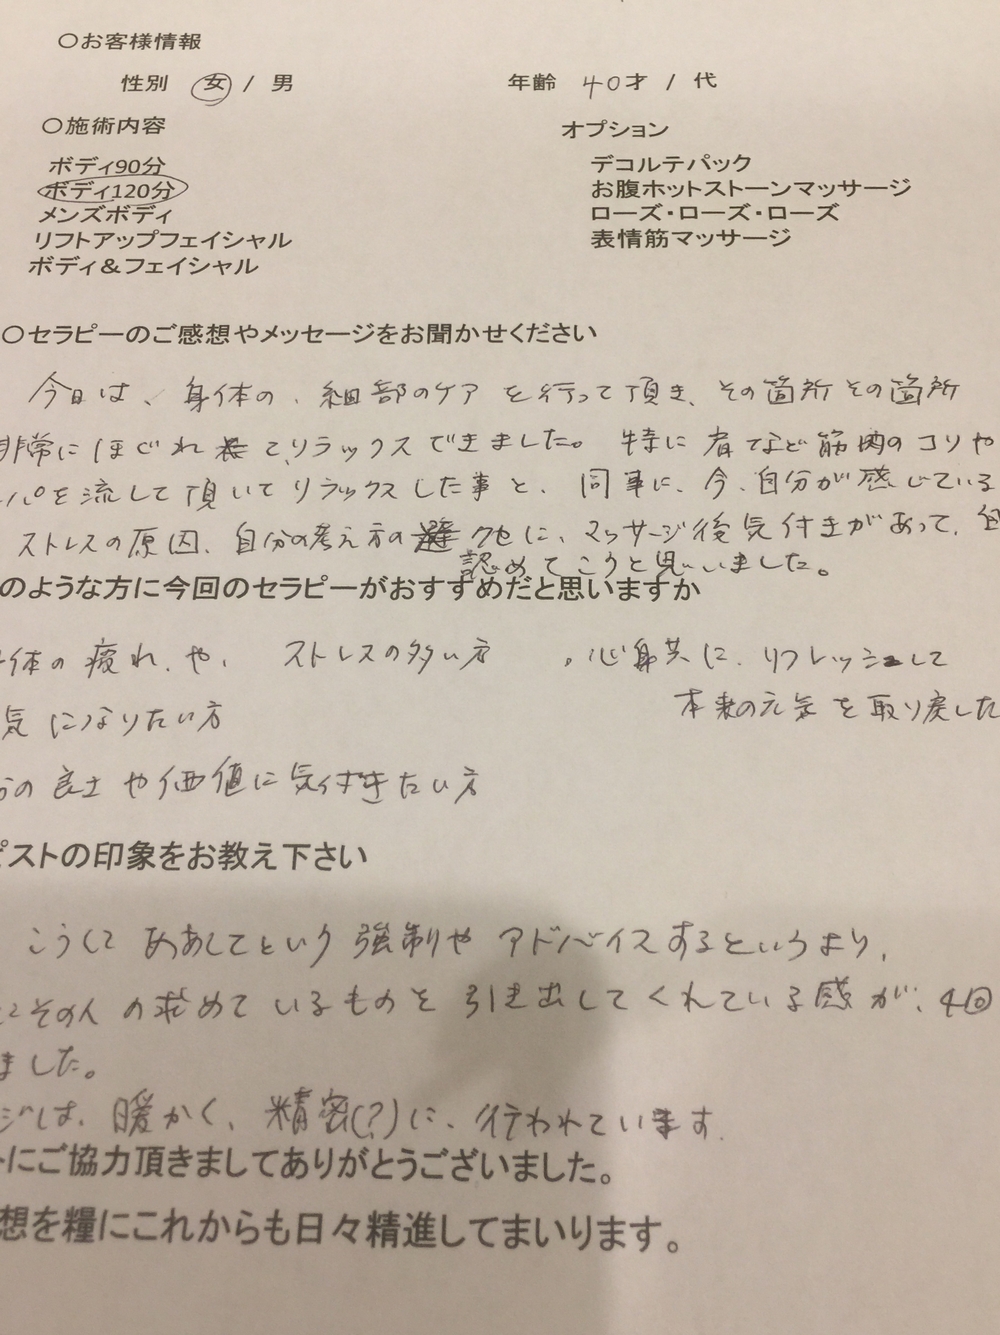 〇お客様情報
性別 女 / 男 年齢 40才 / 代
〇施術内容 オプション
ボディ90分 デコルテパック
ボディ120分 お腹ホットストーンマッサージ
メンズボディ ローズ・ローズ・ローズ
リフトアップフェイシャル 表情筋マッサージ
ボディ＆フェイシャル
〇セラピーのご感想やメッセージをお聞かせください
今日は、身体の、細部のケアを行って頂き、その箇所その箇所
非常にほぐれてリラックスできました。特に肩など筋肉のコリや
ンパを流して頂いてリラックスした事と、同事に、今、自分が感じている
ストレスの原因、自分の考え方の に、マッサージ後気付きがあって、
認めてこうと思いました。
のような方に今回のセラピーがおすすめだと思いますか
体の疲れ、や、ストレスの多い方 。心身共に、リフレッシュして
気になりたい方 本来の元気を取り戻した
の良さや価値に気付きたい方
ピストの印象をお教え下さい
こうして ああしてという強制やアドバイスするというより、
その人の求めているものを引き出してくれている感が、4回
ました。
ジは、暖かく、精密(?)に、行われています。
トにご協力頂きましてありがとうございました。
想を糧にこれからも日々精進してまいります。